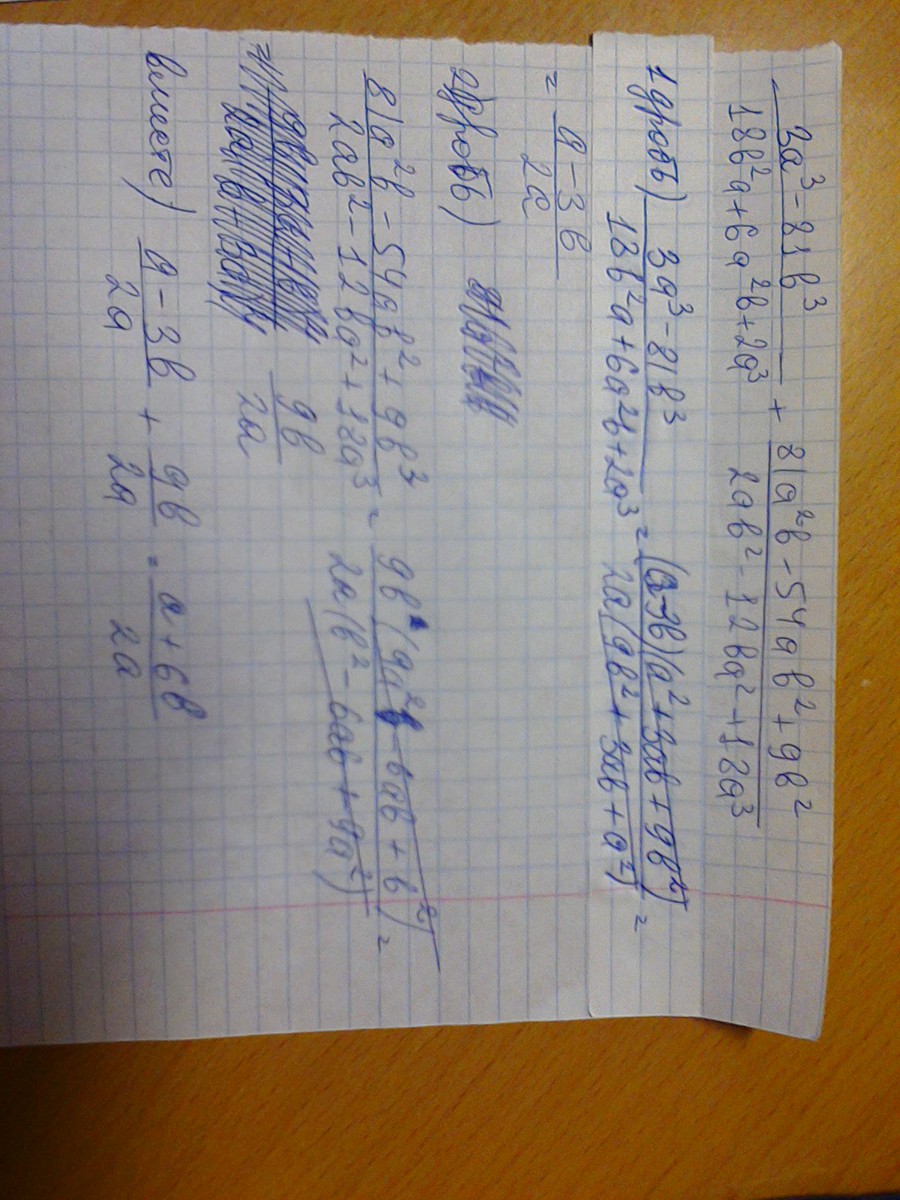 3a³ - 81b³ / 18b²a + 6a²b + 2a³ + 81a²b - 54ab² + 9b² / 2ab² - 12ba² + 18a³
1 дробь) 3a³ - 81b³ / 18b²a + 6a²b + 2a³ = (a - 3b)(a² + 3ab + 9b²) / 2a(9b² + 3ab + a²) =
= a - 3b / 2a
2 дробь)
81a²b - 54ab² + 9b³ / 2ab² - 12ba² + 18a³ = 9b(9a² - 6ab + b²) / 2a(b² - 6ab + 9a²) =
= 9b / 2a
вместе) a - 3b / 2a + 9b / 2a = a + 6b / 2a